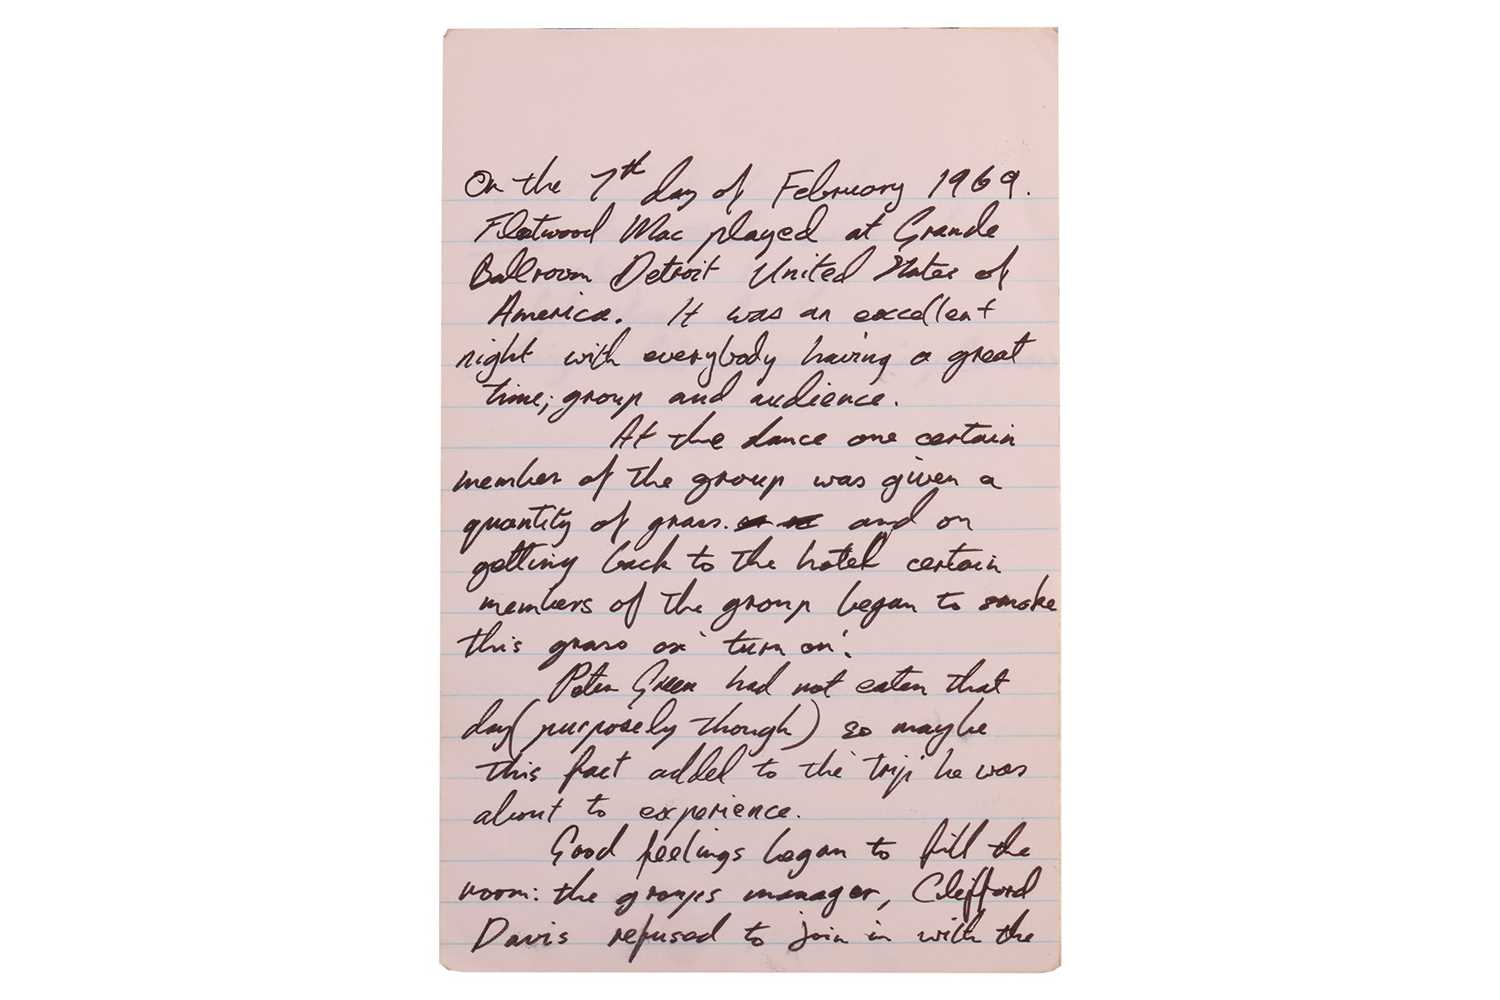 On the 7th day of February 1969.
Fleetwood Mac played at Grande
Ballroom Detroit United States of
America. It was an excellent
night with everybody having a great
time; group and audience.
At the dance one certain
member of the group was given a
quantity of grass. and on
getting back to the hotel certain
members of the group began to smoke
this grass or 'turn on'.
Peter Green had not eaten that
day (purposely though) so maybe
this fact added to the 'trip' he was
about to experience.
Good feelings began to fill the
room: the groups manager, Clifford
Davis refused to join in with the